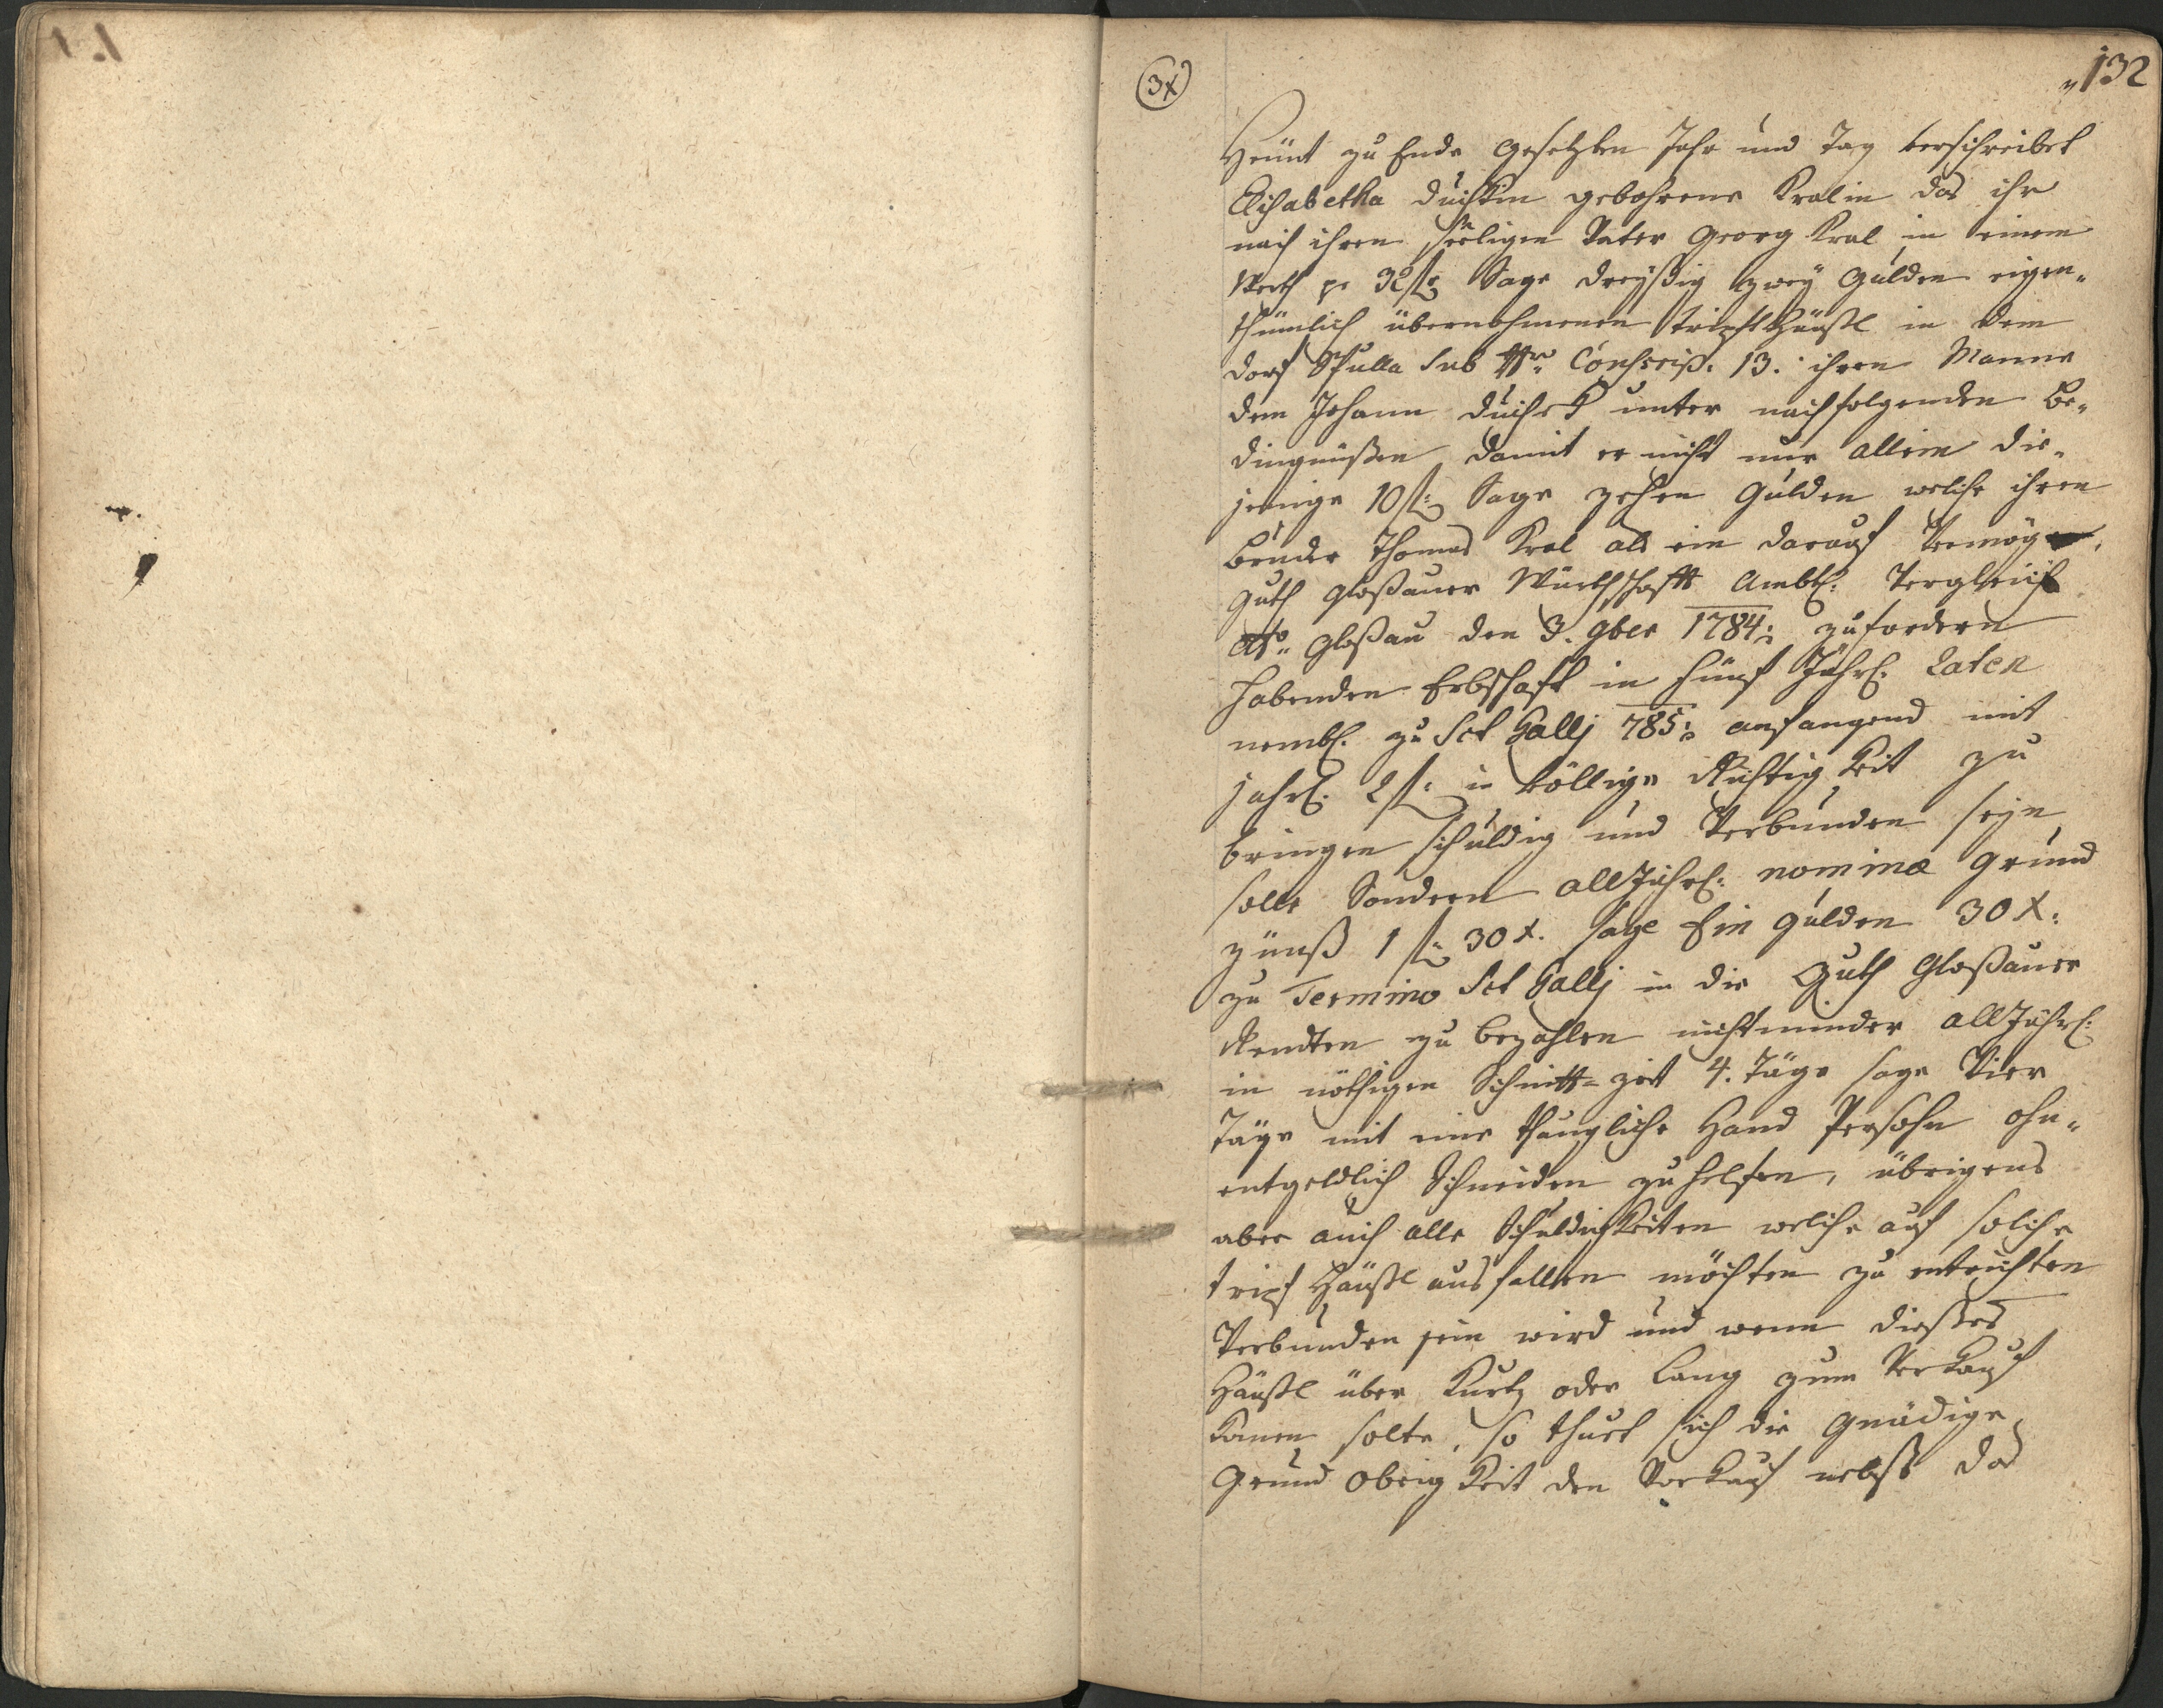 132
3x
Heünt zu Ende gesetzten Jahr und Tag verschreibet
Elisabetha Duchkin gebohrene Kralin das ihr
nach ihren seeligen Vater Georg Kral in einem
Werth pr 32 fl: Sage dreyßig zwey Gulden eigen-
thümlich übernohmenen Tripfhäußl in dem
Dorf Skulla Sub Nr: Conscrip. 13. ihren Manne
dem Johann Duchek unter nachfolgenden Be-
dingnüßen damit er nicht nur allein die-
jenige 10 fl: Sage zehen Gulden welche ihren
Bruder Thomas Kral als ein darauf Vermög
Guth Gloßauer Würthschafts Ambtl: Vergleich
dto: Gloßau den 3. 9ber 1784: zu fordern
habenden Erbschaft in fünf Jährl: Raten
nembl. zu Sct Gallj 785: anfangend mit
jährl: 2 fl: in völlige Richtigkeit zu
bringen schuldig und Verbunden seyn
solle Sondern all Jährl: nominæ Grund
zünß 1 fl: 30 x. sage Ein Gulden 30 x:
zu Termino Sct Gallj in die Guth Gloßauer
Rendten zu bezahlen nicht minder all Jährl:
in nöthigen Schnitt=zeit 4. Täge sage Vier
Täge mit eine thaugliche Hand Persohn ohn-
entgeldlich Schneiden zu helfen, übrigens
aber auch alle Schuldigkeiten welche auf solche
Tripf Häußl ausfallen möchten zu entrichten
Verbunden sein wird und wenn dießes
Häußl über Kurtz oder Lang zum Verkauf
komen solte, so thuet sich die Gnädige
Grund Obrigkeit den Vorkauf nebst das